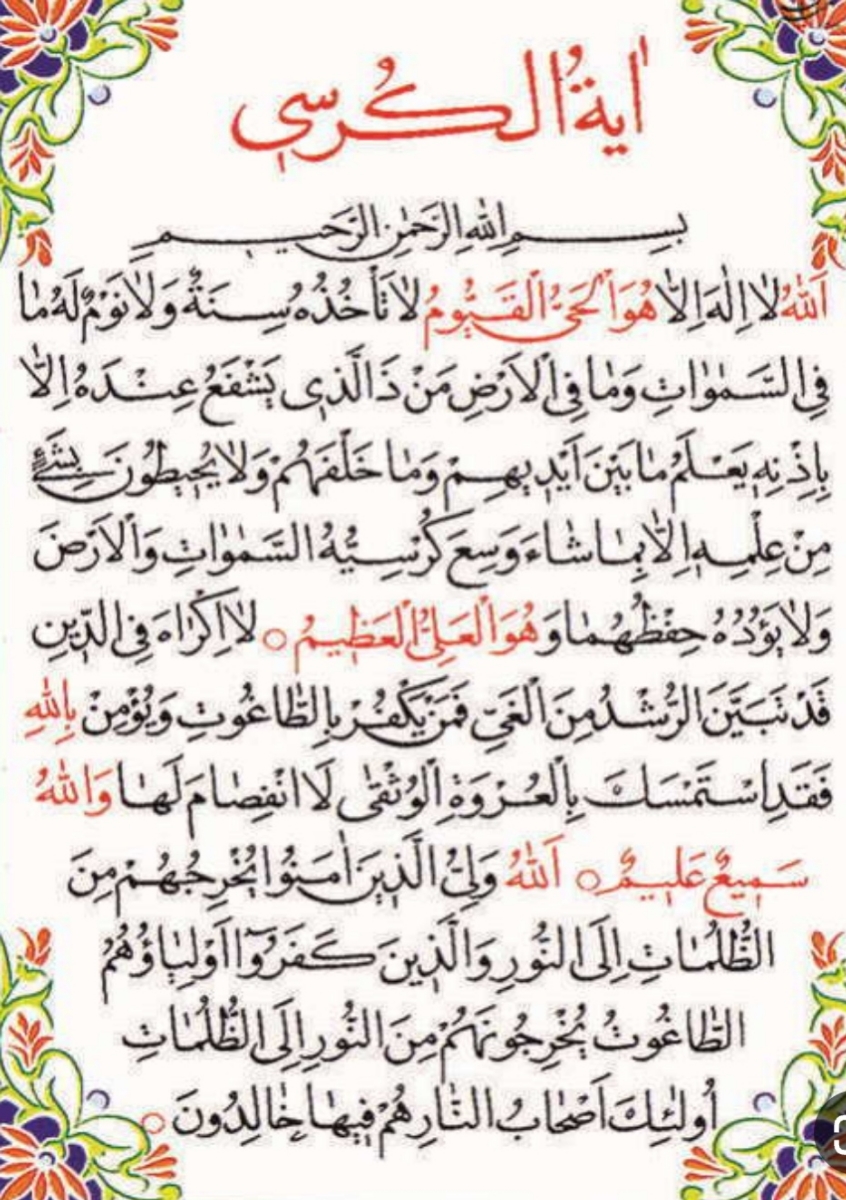 اٰيَةُ الْكُرْسِي
بِسْمِ اللهِ الرَّحْمٰنِ الرَّحِيمِ
اَللهُ لَا اِلٰهَ اِلَّا هُوَ الْحَيُّ الْقَيُّومُ لَا تَأْخُذُهُ سِنَةٌ وَلَا نَوْمٌ لَهُ مَا
فِي السَّمٰوَاتِ وَمَا فِي الْاَرْضِ مَنْ ذَا الَّذِي يَشْفَعُ عِنْدَهُ اِلَّا
بِاِذْنِهِ يَعْلَمُ مَا بَيْنَ اَيْدِيهِمْ وَمَا خَلْفَهُمْ وَلَا يُحِيطُونَ بِشَيْءٍ
مِنْ عِلْمِهِ اِلَّا بِمَا شَاءَ وَسِعَ كُرْسِيُّهُ السَّمٰوَاتِ وَالْاَرْضَ
وَلَا يَؤُدُهُ حِفْظُهُمَا وَهُوَ الْعَلِيُّ الْعَظِيمُ ○ لَا اِكْرَاهَ فِي الدِّينِ
قَدْ تَبَيَّنَ الرُّشْدُ مِنَ الْغَيِّ فَمَنْ يَكْفُرْ بِالطَّاغُوتِ وَيُؤْمِنْ بِاللهِ
فَقَدِ اسْتَمْسَكَ بِالْعُرْوَةِ الْوُثْقٰى لَا انْفِصَامَ لَهَا وَاللهُ
سَمِيعٌ عَلِيمٌ ○ اَللهُ وَلِيُّ الَّذِينَ اٰمَنُوا يُخْرِجُهُمْ مِنَ
الظُّلُمَاتِ اِلَى النُّورِ وَالَّذِينَ كَفَرُوٓا اَوْلِيَاؤُهُمُ
الطَّاغُوتُ يُخْرِجُونَهُمْ مِنَ النُّورِ اِلَى الظُّلُمَاتِ
اُولٰئِكَ اَصْحَابُ النَّارِ هُمْ فِيهَا خَالِدُونَ ○